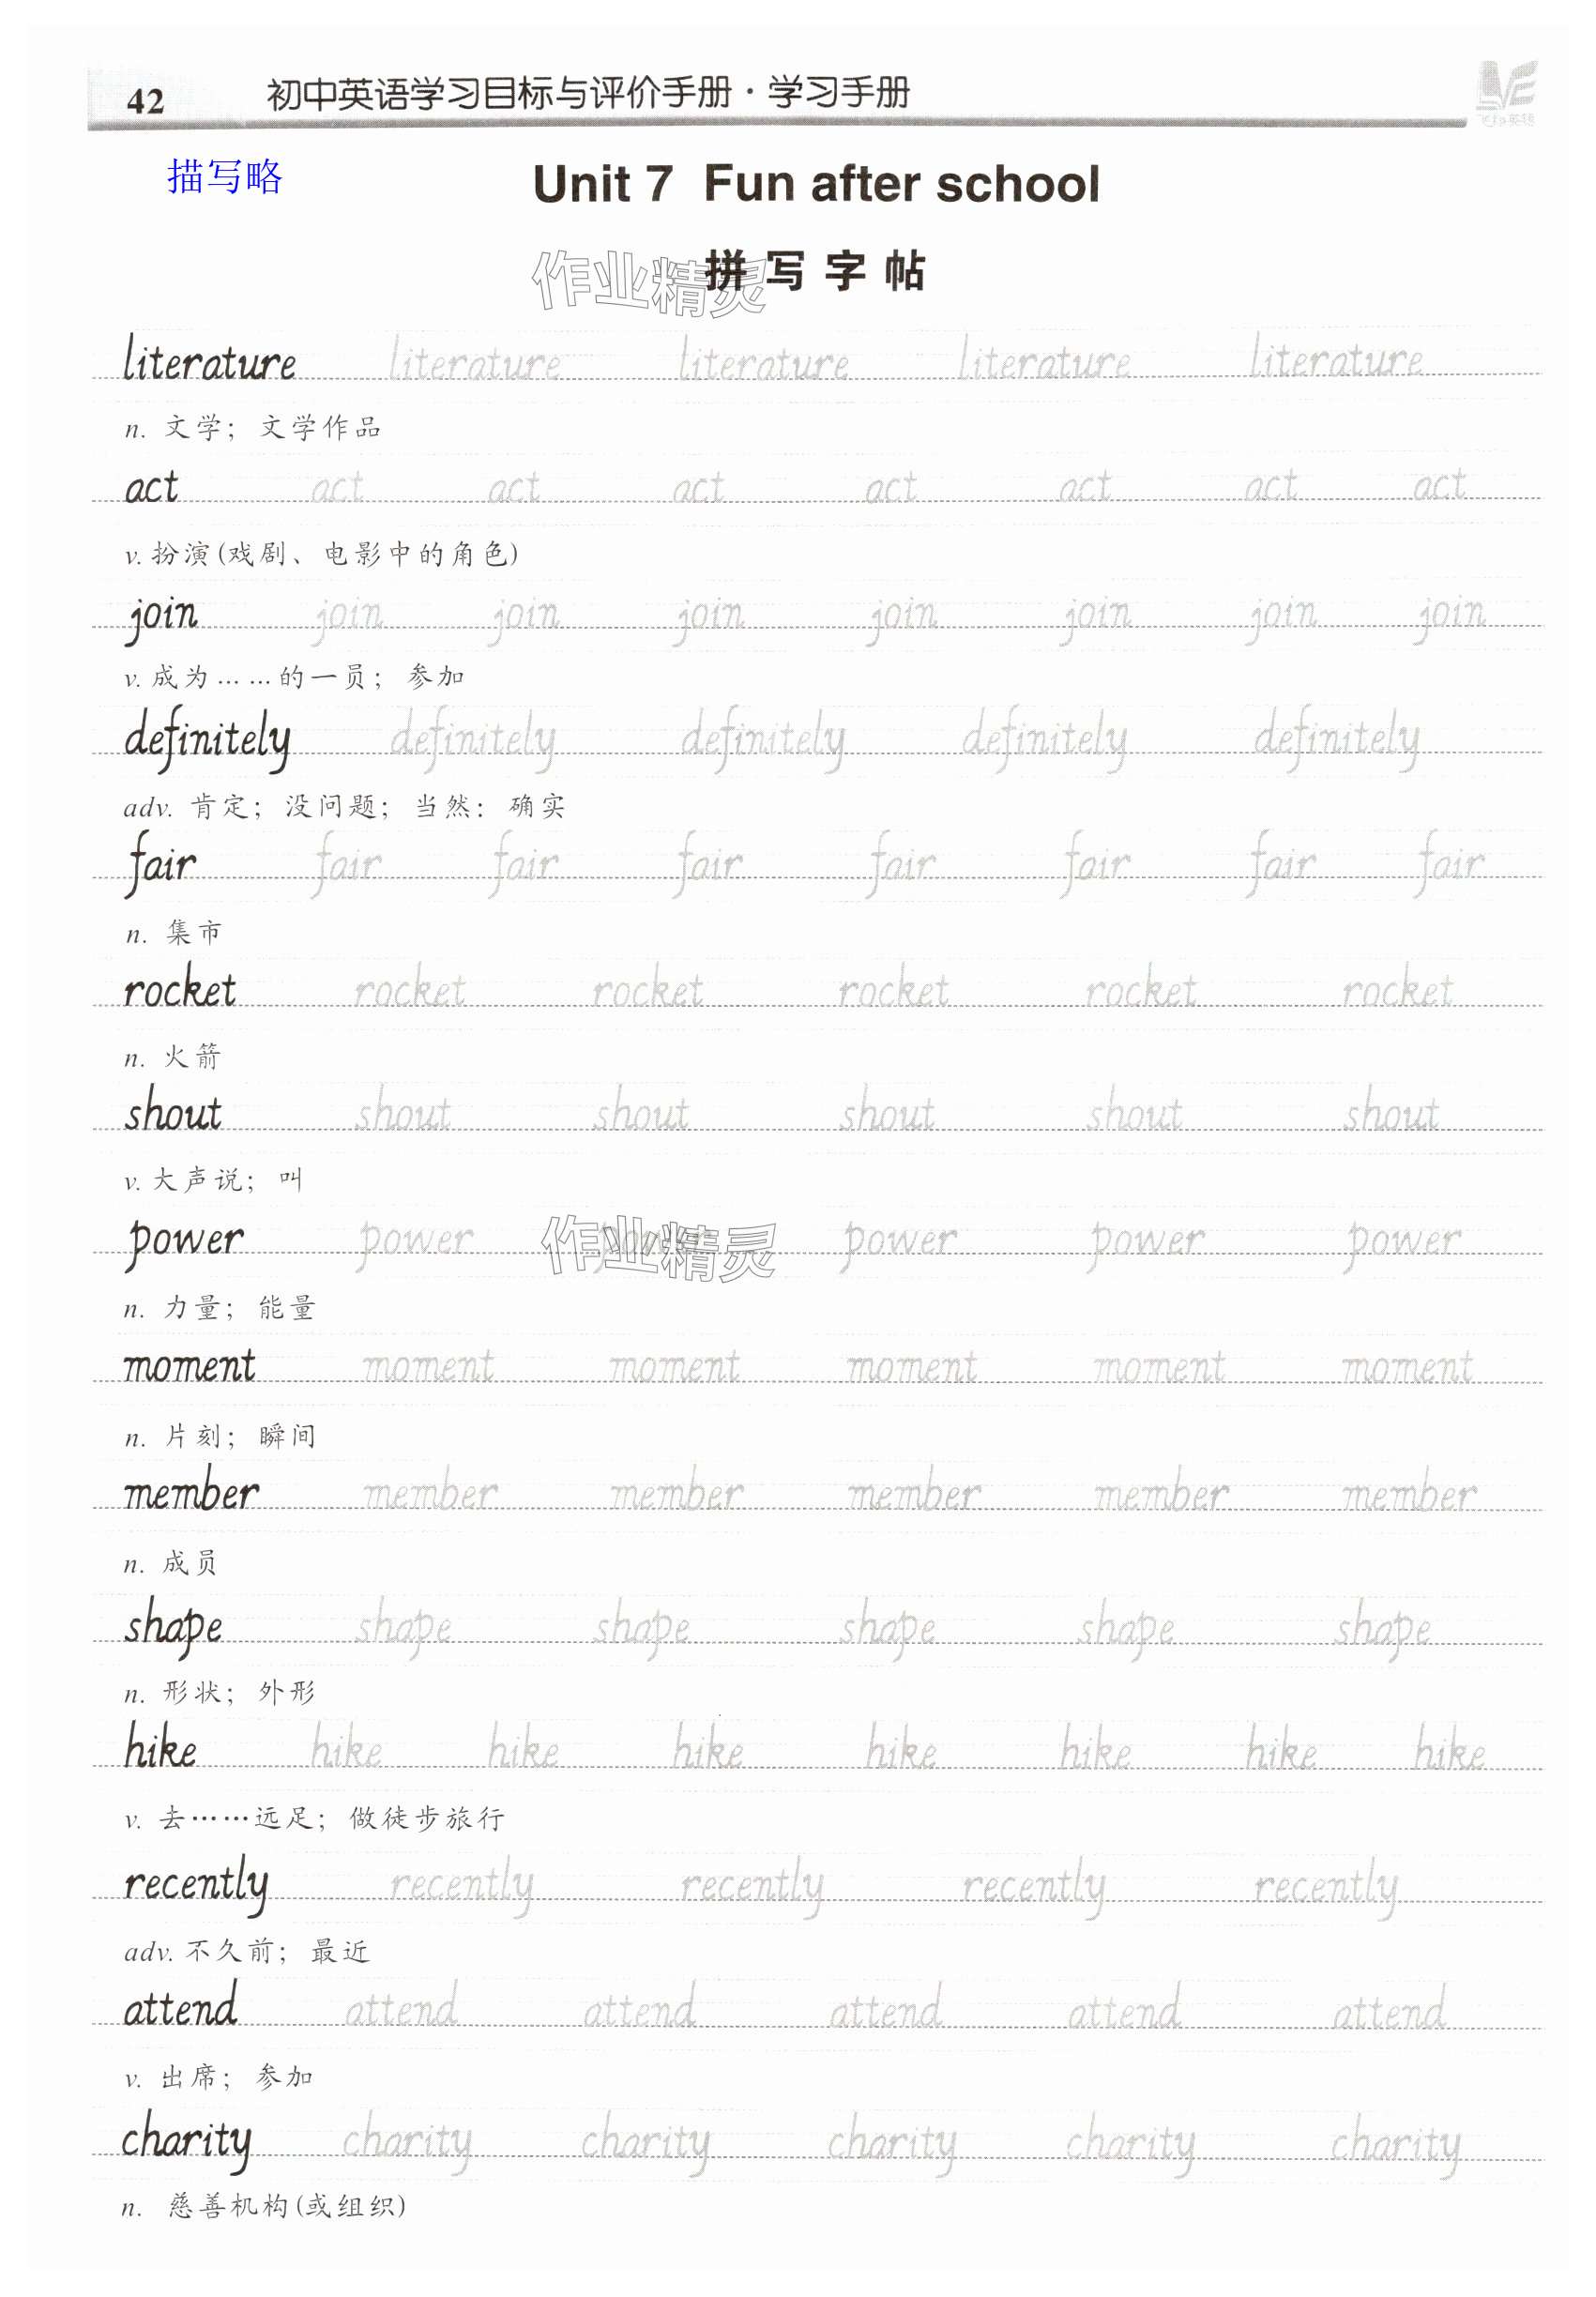 42 初中英语学习目标与评价手册·学习手册
描写略
Unit 7 Fun after school
拼写字帖
作业精灵
literature literature literature literature literature
n. 文学；文学作品
act act act act act act act act
v. 扮演(戏剧、电影中的角色)
join join join join join join join join
v. 成为……的一员；参加
definitely definitely definitely definitely definitely
adv. 肯定；没问题；当然：确实
fair fair fair fair fair fair fair fair
n. 集市
rocket rocket rocket rocket rocket rocket
n. 火箭
shout shout shout shout shout shout
v. 大声说；叫
power power power power power power
作业精灵
n. 力量；能量
moment moment moment moment moment moment
n. 片刻；瞬间
member member member member member member
n. 成员
shape shape shape shape shape shape
n. 形状；外形
hike hike hike hike hike hike hike hike
v. 去……远足；做徒步旅行
recently recently recently recently recently
adv. 不久前；最近
attend attend attend attend attend attend
v. 出席；参加
charity charity charity charity charity charity
n. 慈善机构(或组织)